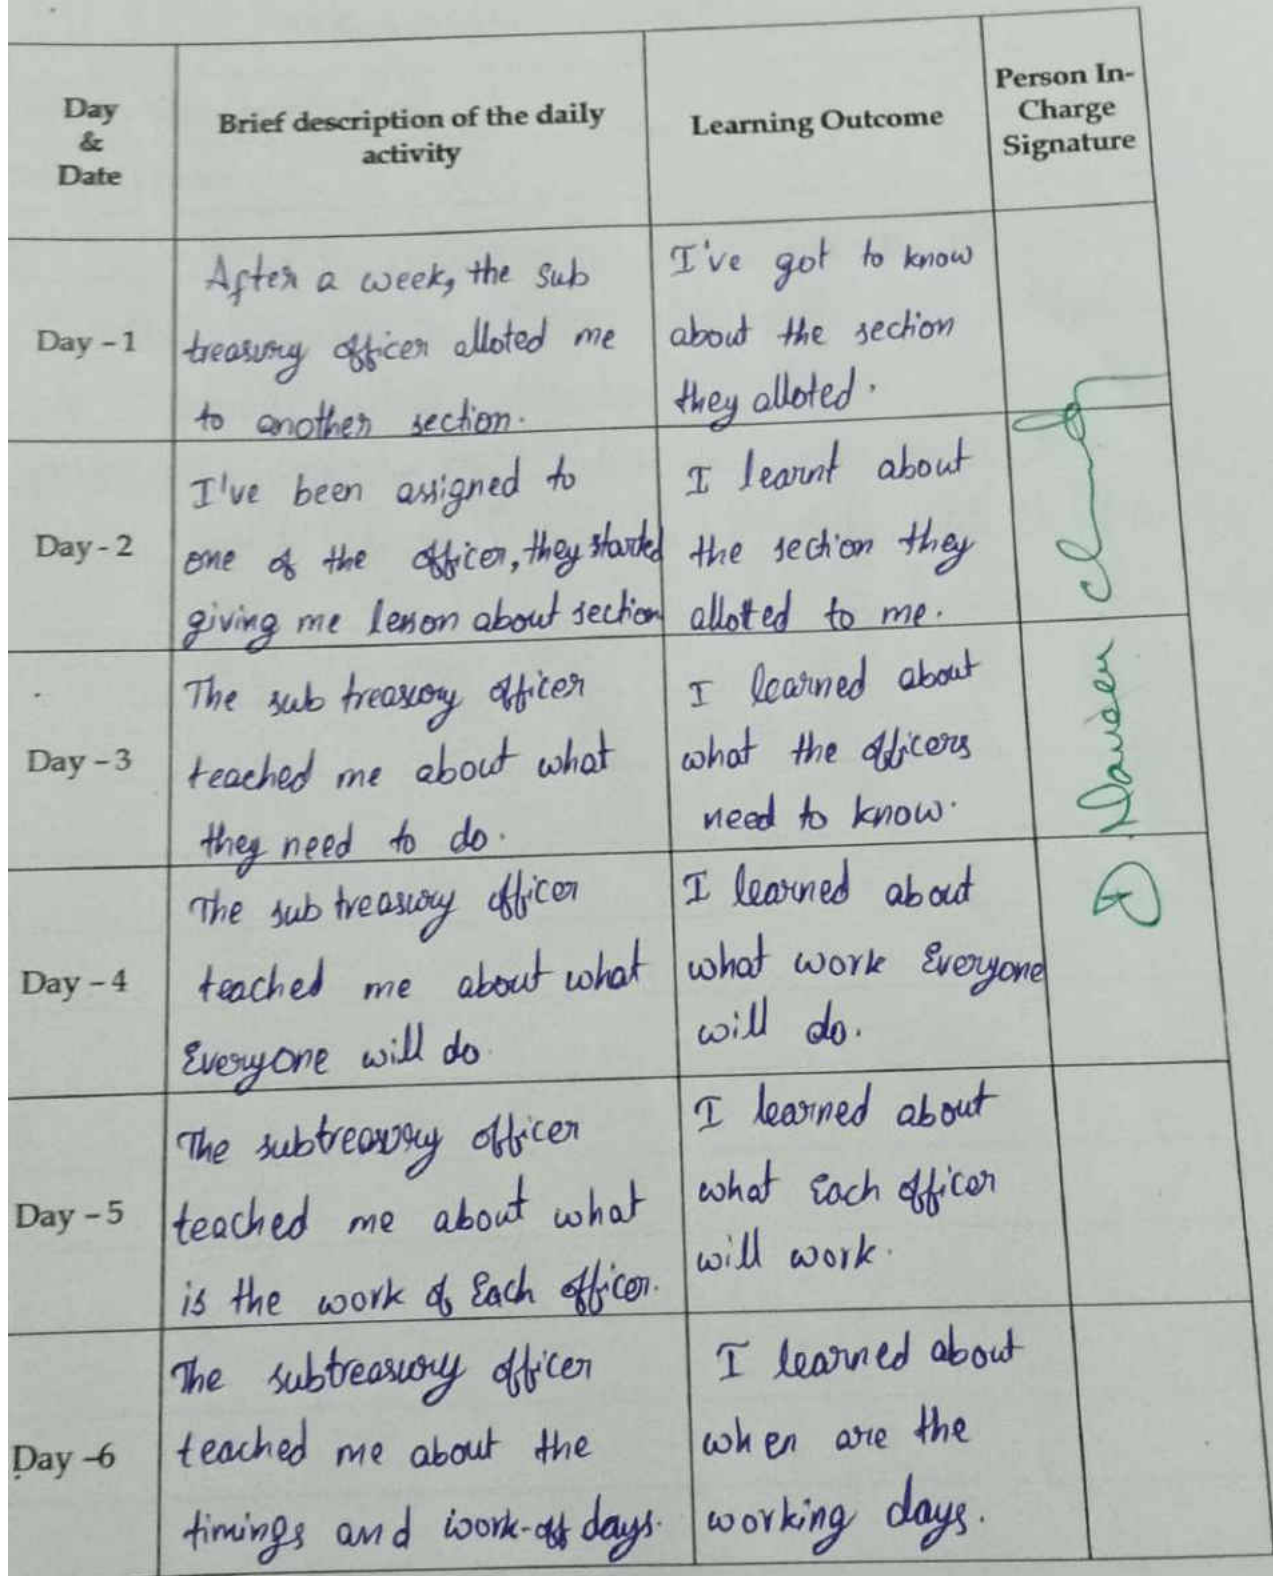 Day
&
Date
Brief description of the daily
activity
Learning Outcome
Person In-
Charge
Signature
Day - 1
After a week, the sub
treasury officer alloted me
to another section.
I've got to know
about the section
they alloted.
Day - 2
I've been assigned to
one of the officer, they started
giving me lesson about section
I learnt about
the section they
alloted to me.
Day - 3
The sub treasury officer
teached me about what
they need to do.
I learned about
what the officers
need to know.
Day - 4
The sub treasury officer
teached me about what
Everyone will do.
I learned about
what work Everyone
will do.
Day - 5
The subtreasury officer
teached me about what
is the work of Each officer.
I learned about
what Each officer
will work.
Day -6
The subtreasury officer
teached me about the
timings and work-off days.
I learned about
when are the
working days.